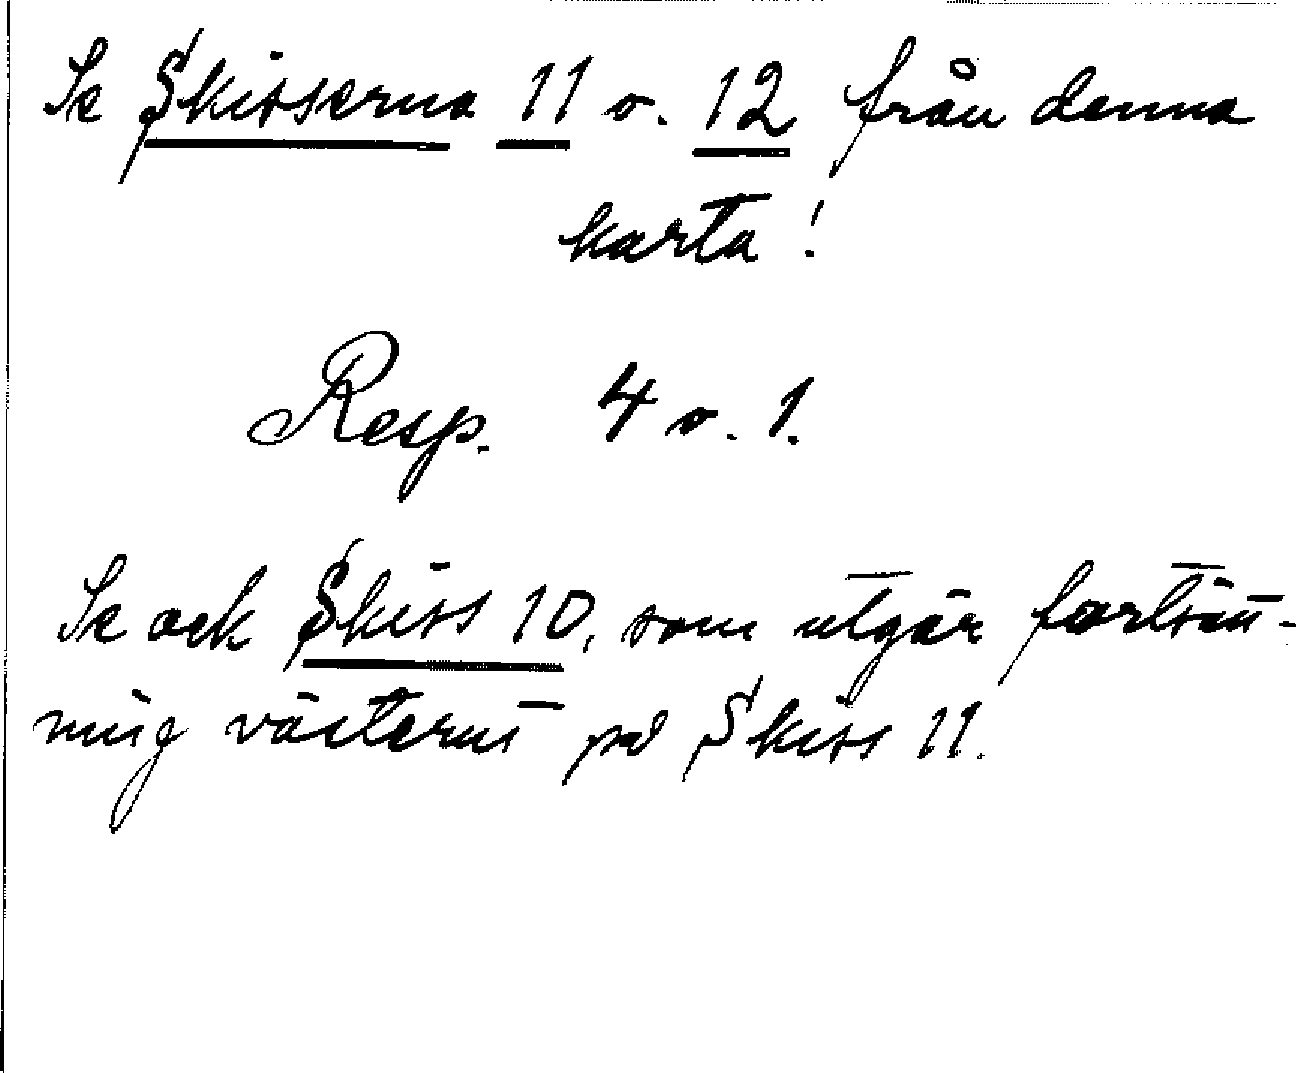 Se Skisserna 11 o. 12 från denna
karta!
Resp. 4 o. 1.
Se ock Skiss 10, som utgör fortsätt-
ning västerut på Skiss 11.